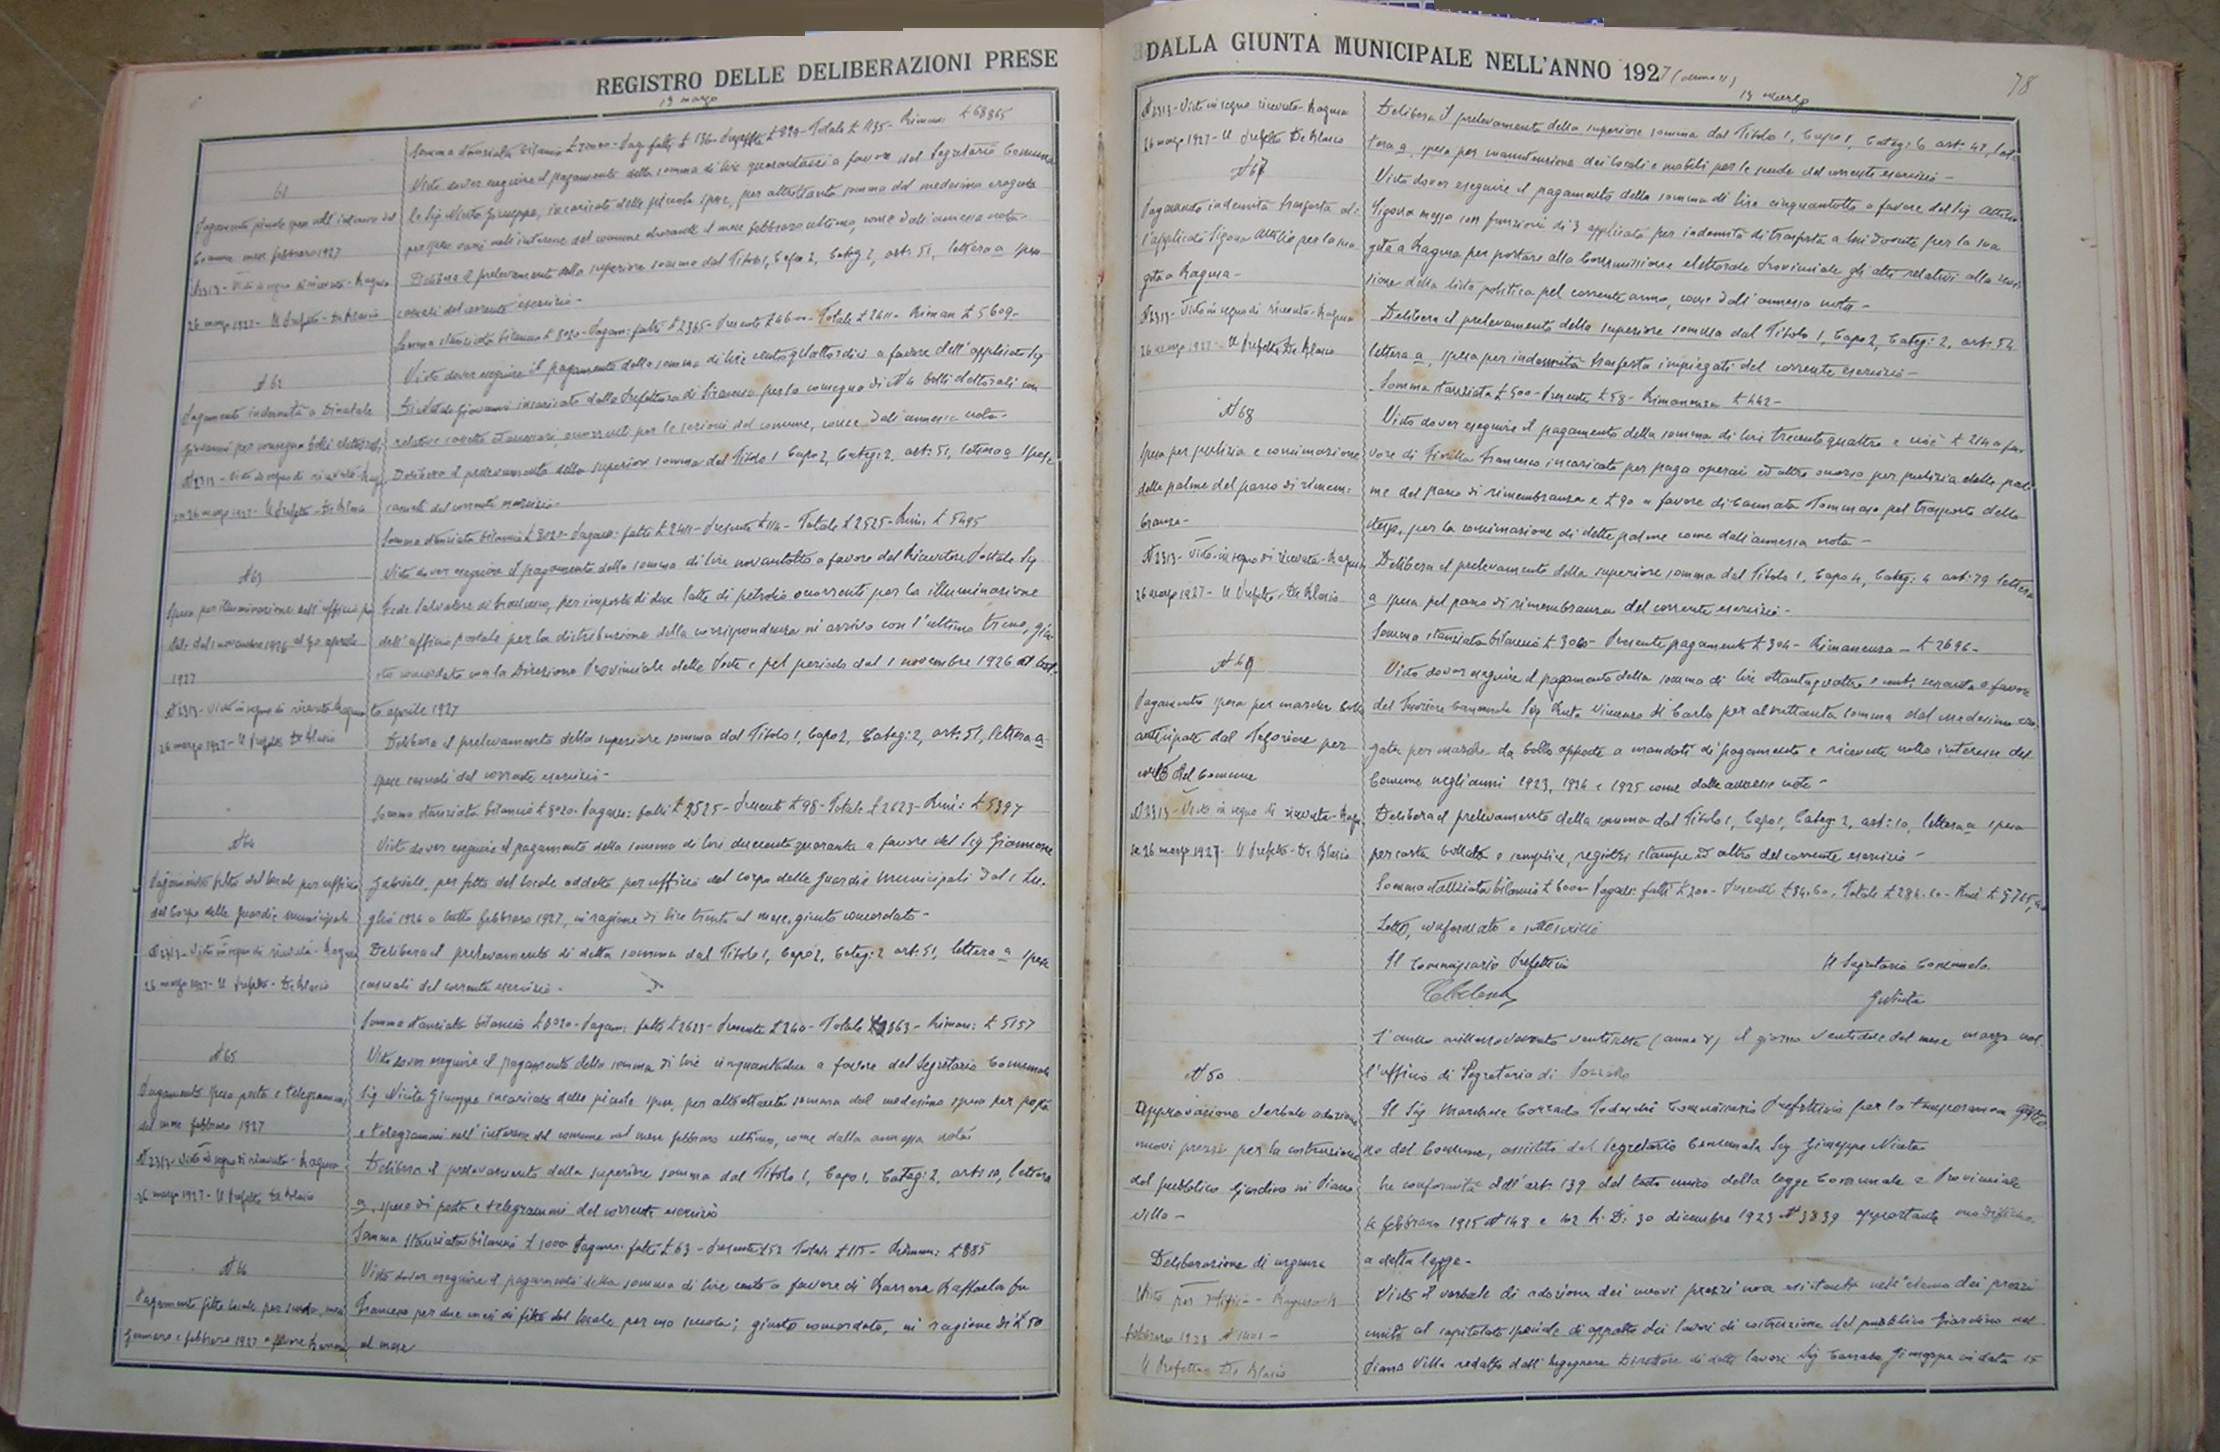 REGISTRO DELLE DELIBERAZIONI PRESE
19 marzo
Somma stanziata bilancio £ 70000 - Totale £ 1135 - Riman: £ 68865
61
Visto dover eseguire il pagamento della somma di lire a favore del Segretario Comuna
le Sig Nicita Giuseppe, incaricato delle piccole spese, per altrettanta somma dal medesimo erogata
per spese varie nell'interesse del comune durante il mese febbraio ultimo, come dall'annessa nota
Comune mese febbraio 1927
Delibera il prelevamento della superiore somma dal Titolo 1, Capo 2, Categ 2, art. 51, lettera a spese
N 2313 - Visto in segno di ricevuta - Ragusa
26 marzo 1927 - Il Prefetto - De Blasio
casuali del corrente esercizio -
Somma stanziata bilancio £ 8020 - Pagam: fatti £ 2365 - Presente £ 46 - Totale £ 2411 - Riman £ 5609 -
N 62
Visto dover eseguire il pagamento della somma di lire centoquattordici a favore dell'applicato Sig
Pagamento indennità a Dinatale
Giovanni per consegna bolli elettorali
Dinatale Giovanni incaricato dalla Prefettura di Siracusa per la consegna di N 4 bolli elettorali con
relative cassette ed accessori, occorrenti per le sezioni del comune, come dall'annessa nota -
N 2313 - Visto in segno di ricevuta - Rag
Delibera il prelevamento della superiore somma dal Titolo 1 Capo 2, Categ: 2, art: 51, lettera a spese
26 marzo 1927 - Il Prefetto - De Blasio
casuali del corrente esercizio -
Somma stanziata bilancio £ 8020 - Pagam: fatti £ 2411 - Presente £ 114 - Totale £ 2525 - Rim. £ 5495
N 63
Visto dover eseguire il pagamento della somma di lire novantotto a favore del Ricevitore Postale Sig
Spesa per illuminazione dell'ufficio po
Fede Salvatore di Francesco, per importo di due latte di petrolio occorrenti per la illuminazione
stale dal 1 novembre 1926 al 30 aprile
dell'ufficio postale per la distribuzione della corrispondenza in arrivo con l'ultimo treno, giu
1927
sto concordato con la Direzione Provinciale delle Poste e pel periodo dal 1 novembre 1926 al
N 2313 - Visto in segno di ricevuta Ragusa
to aprile 1927
26 marzo 1927 - Il Prefetto De Blasio
Delibera il prelevamento della superiore somma dal Titolo 1, Capo 2, Categ: 2, art: 51, lettera a
spese casuali del corrente esercizio -
Somma stanziata bilancio £ 8020 - Pagam: fatti £ 2525 - Presente £ 98 - Totale £ 2623 - Rim: £ 5397
N 64
Visto dover eseguire il pagamento della somma di lire duecentoquaranta a favore del Sig Giannone
Pagamento fitto del locale per ufficio
Gabriele, per fitto del locale addetto per ufficio del corpo delle Guardie Municipali dal 1 Lu-
del Corpo delle Guardie Municipali
glio 1926 a tutto febbraio 1927, in ragione di lire trenta al mese, giusto concordato -
N 2313 - Visto in segno di ricevuta - Ragusa
Delibera il prelevamento di detta somma dal Titolo 1, Capo 2, Categ: 2 art: 51, lettera a spese
26 marzo 1927 - Il Prefetto - De Blasio
casuali del corrente esercizio -
Somma stanziata bilancio £ 8020 - Pagam: fatti £ 2623 - Presente £ 240 - Totale £ 2863 - Riman: £ 5157
N 65
Visto dover eseguire il pagamento della somma di lire cinquantadue a favore del Segretario Comunale
Pagamento spesa posta e telegrammi
Sig Nicita Giuseppe incaricato delle piccole spese, per altrettanta somma dal medesimo spesa per posta
del mese febbraio 1927
e telegrammi nell'interesse del comune nel mese febbraio ultimo, come dalla annessa nota
N 2313 - Visto in segno di ricevuta - Ragusa
Delibera il prelevamento della superiore somma dal Titolo 1, Capo 1, Categ: 2, art: 10, lettera
26 marzo 1927 - Il Prefetto De Blasio
a, spesa di posta e telegrammi del corrente esercizio
Somma stanziata bilancio £ 1000 Pagam: fatti £ 63 - Presente £ 52 Totale £ 115 - Riman: £ 885
N 66
Visto dover eseguire il pagamento della somma di lire cento a favore di Raffaela fu
Pagamento fitto locale per scuola, mesi
Francesco per due mesi di fitto del locale per uso scuola; giusto concordato, in ragione di £ 50
Gennaro e febbraio 1927 a favore
al mese
DALLA GIUNTA MUNICIPALE NELL'ANNO 1927 (anno V)
78
19 marzo
N 2313 - Visto in segno ricevuta - Ragusa
Delibera il prelevamento della superiore somma dal Titolo 1, Capo 1, Categ: 6 art: 47, let-
26 marzo 1927 - Il Prefetto De Blasio
tera a, spesa per manutenzione dei locali e mobili per le scuole del corrente esercizio -
N 67
Visto dover eseguire il pagamento della somma di lire cinquantotto a favore del Sig Attilio
Pagamento indennità trasferta al-
l'applicato Attilio per la sua
messo con funzioni di applicato per indennità di trasferta a lui dovuta per la sua
gita a Ragusa -
gita a Ragusa per portare alla Commissione elettorale Provinciale gli atti relativi alla revi
sione della lista politica pel corrente anno, come dall'annessa nota -
N 2313 - Visto in segno di ricevuta - Ragusa
Delibera il prelevamento della superiore somma dal Titolo 1, Capo 2, Categ: 2, art: 54
26 marzo 1927 - Il Prefetto De Blasio
lettera a, spesa per indennità trasferta impiegati del corrente esercizio -
Somma stanziata £ 500 - Presente £ 58 - Rimanenza £ 442 -
N 68
Visto dover eseguire il pagamento della somma di lire trecentoquattro e cioè £ 214 a fa-
Spesa per pulizia e concimazione
vore di Francesco incaricato per paga operai ed altro occorso per pulizia delle pal-
delle palme del parco di rimem-
me del parco di rimembranza e £ 90 a favore di Cannata Tommaso pel trasporto dello
branza -
sterco, per la concimazione di dette palme come dall'annessa nota -
N 2313 - Visto in segno di ricevuta - Ragusa
Delibera il prelevamento della superiore somma dal Titolo 1, Capo 4, Categ: 4 art: 79 lettera
26 marzo 1927 - Il Prefetto - De Blasio
a spesa pel parco di rimembranza del corrente esercizio -
Somma stanziata bilancio £ 3000 - Presente pagamento £ 304 - Rimanenza - £ 2696 -
N 69
Visto dover eseguire il pagamento della somma di lire ottantaquattro e cent: sessanta a favore
Pagamento spesa per marche bollo
del Tesoriere Comunale Sig Vincenzo di Carlo per altrettanta somma dal medesimo ero
anticipate dal Tesoriere per
gata per marche da bollo apposte a mandati di pagamento e ricevute nello interesse del
conto del Comune
Comune negli anni 1923, 1924 e 1925 come dalle annesse note -
N 2313 - Visto in segno di ricevuta - Ragu
Delibera il prelevamento della somma dal Titolo 1, Capo 1, Categ: 2, art: 10, lettera a spesa
sa 26 marzo 1927 - Il Prefetto - De Blasio
per carta bollata e semplice, registri stampe ed altro del corrente esercizio -
Somma stanziata bilancio £ 6000 Pagam: fatti £ 200 - Presente £ 84.60, Totale £ 284.60 - Rim £ 5715,40
Letto, confermato e sottoscritto
Il Commissario Prefettizio
Il Segretario Comunale
GNicita
L'anno millenovecento ventisette (anno V) il giorno ventidue del mese marzo nel-
N 70
l'ufficio di Segreteria di
Approvazione verbale adozione
Il Sig Marchese Corrado Tedeschi Commissario Prefettizio per la temporanea gestio
nuovi prezzi per la costruzione
ne del Comune, assistito dal Segretario Comunale Sig Giuseppe Nicita
del pubblico Giardino in Piano
In conformità dell'art: 139 del testo unico della legge Comunale e Provinciale
Villa -
4 febbraio 1915 N 148 e 102 R. D: 30 dicembre 1923 N 3839 apportante modifiche
Deliberazione di urgenza
a detta legge -
Visto per Ragusa
Visto il verbale di adozione dei nuovi prezzi non esistenti nell'elenco dei prezzi
febbraio 1928 N
unito al capitolato speciale di appalto dei lavori di costruzione del pubblico Giardino nel
Il Prefetto De Blasio
Piano Villa redatto dall'Ingegnere Direttore di detti lavori Sig Giuseppe in data 15